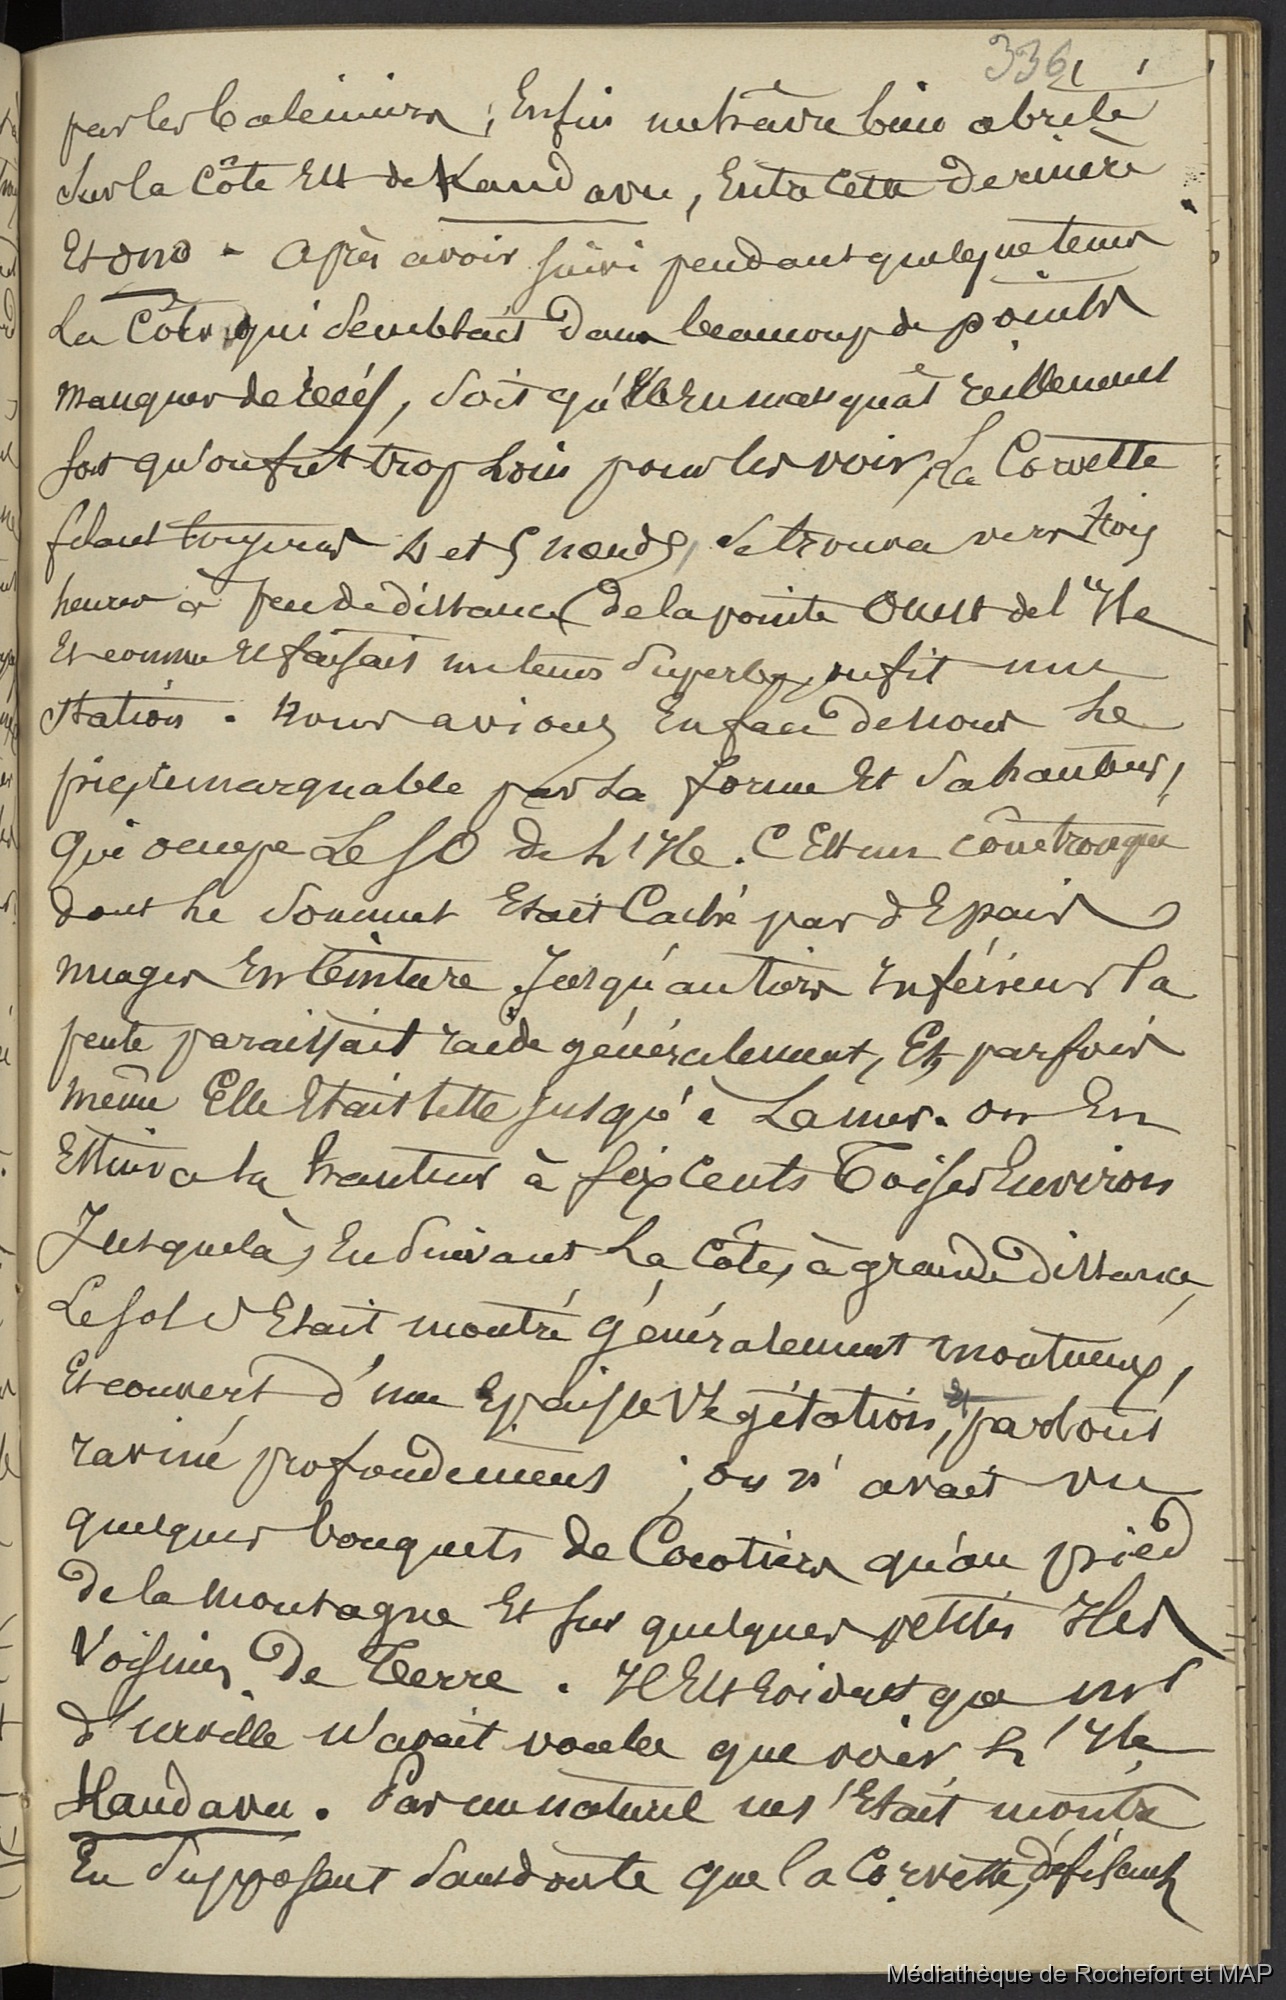 336
par les baleiniers ; Enfin un havre bien abrité
Sur la Côte Est de Kandavu, Entre cette dernière
Et Ono - après avoir suivi pendant quelque tems
La Côte, qui Semblait dans beaucoup de points
manquer de récifs, Soit qu'Elle en manquât réellement
Soit qu'on fut trop Loin pour les voir, La Corvette
filant toujours 4 et 5 nœuds, se trouva vers trois
heures à peu de distance de la pointe Ouest de l'Ile
Et comme il faisait un tems Superbe, on fit une
Station. Nous avions En face de nous Le
pic, remarquable par sa forme Et Sa hauteur,
qui occupe Le SO de L'Ile. C'Est un cône tronqué
dont Le Sommet Etait Caché par d'Epais
nuages En Ceinture. Jusqu'au tiers inférieur la
pente paraissait raide généralement, Et parfois
même Elle Etait telle jusqu'à La mer. on En
Estima la hauteur à six Cents Toises Environ
Jusque là, En Suivant La Côte, à grande distance,
Le sol s'Etait montré généralement montueux,
Et couvert d'une Epaisse Végétation, et partout
raviné profondément ; on n'avait vu
quelques bouquets de Cocotiers qu'au pied
de la montagne Et sur quelques petites Iles
Voisines de Terre. Il Est Evident que Mr
d'urville n'avait voulu que voir L'Ile
Kandavu. Pas un naturel ne s'Etait montré
En Supposant Sans doute que la Corvette, défilant
Médiathèque de Rochefort et MAP